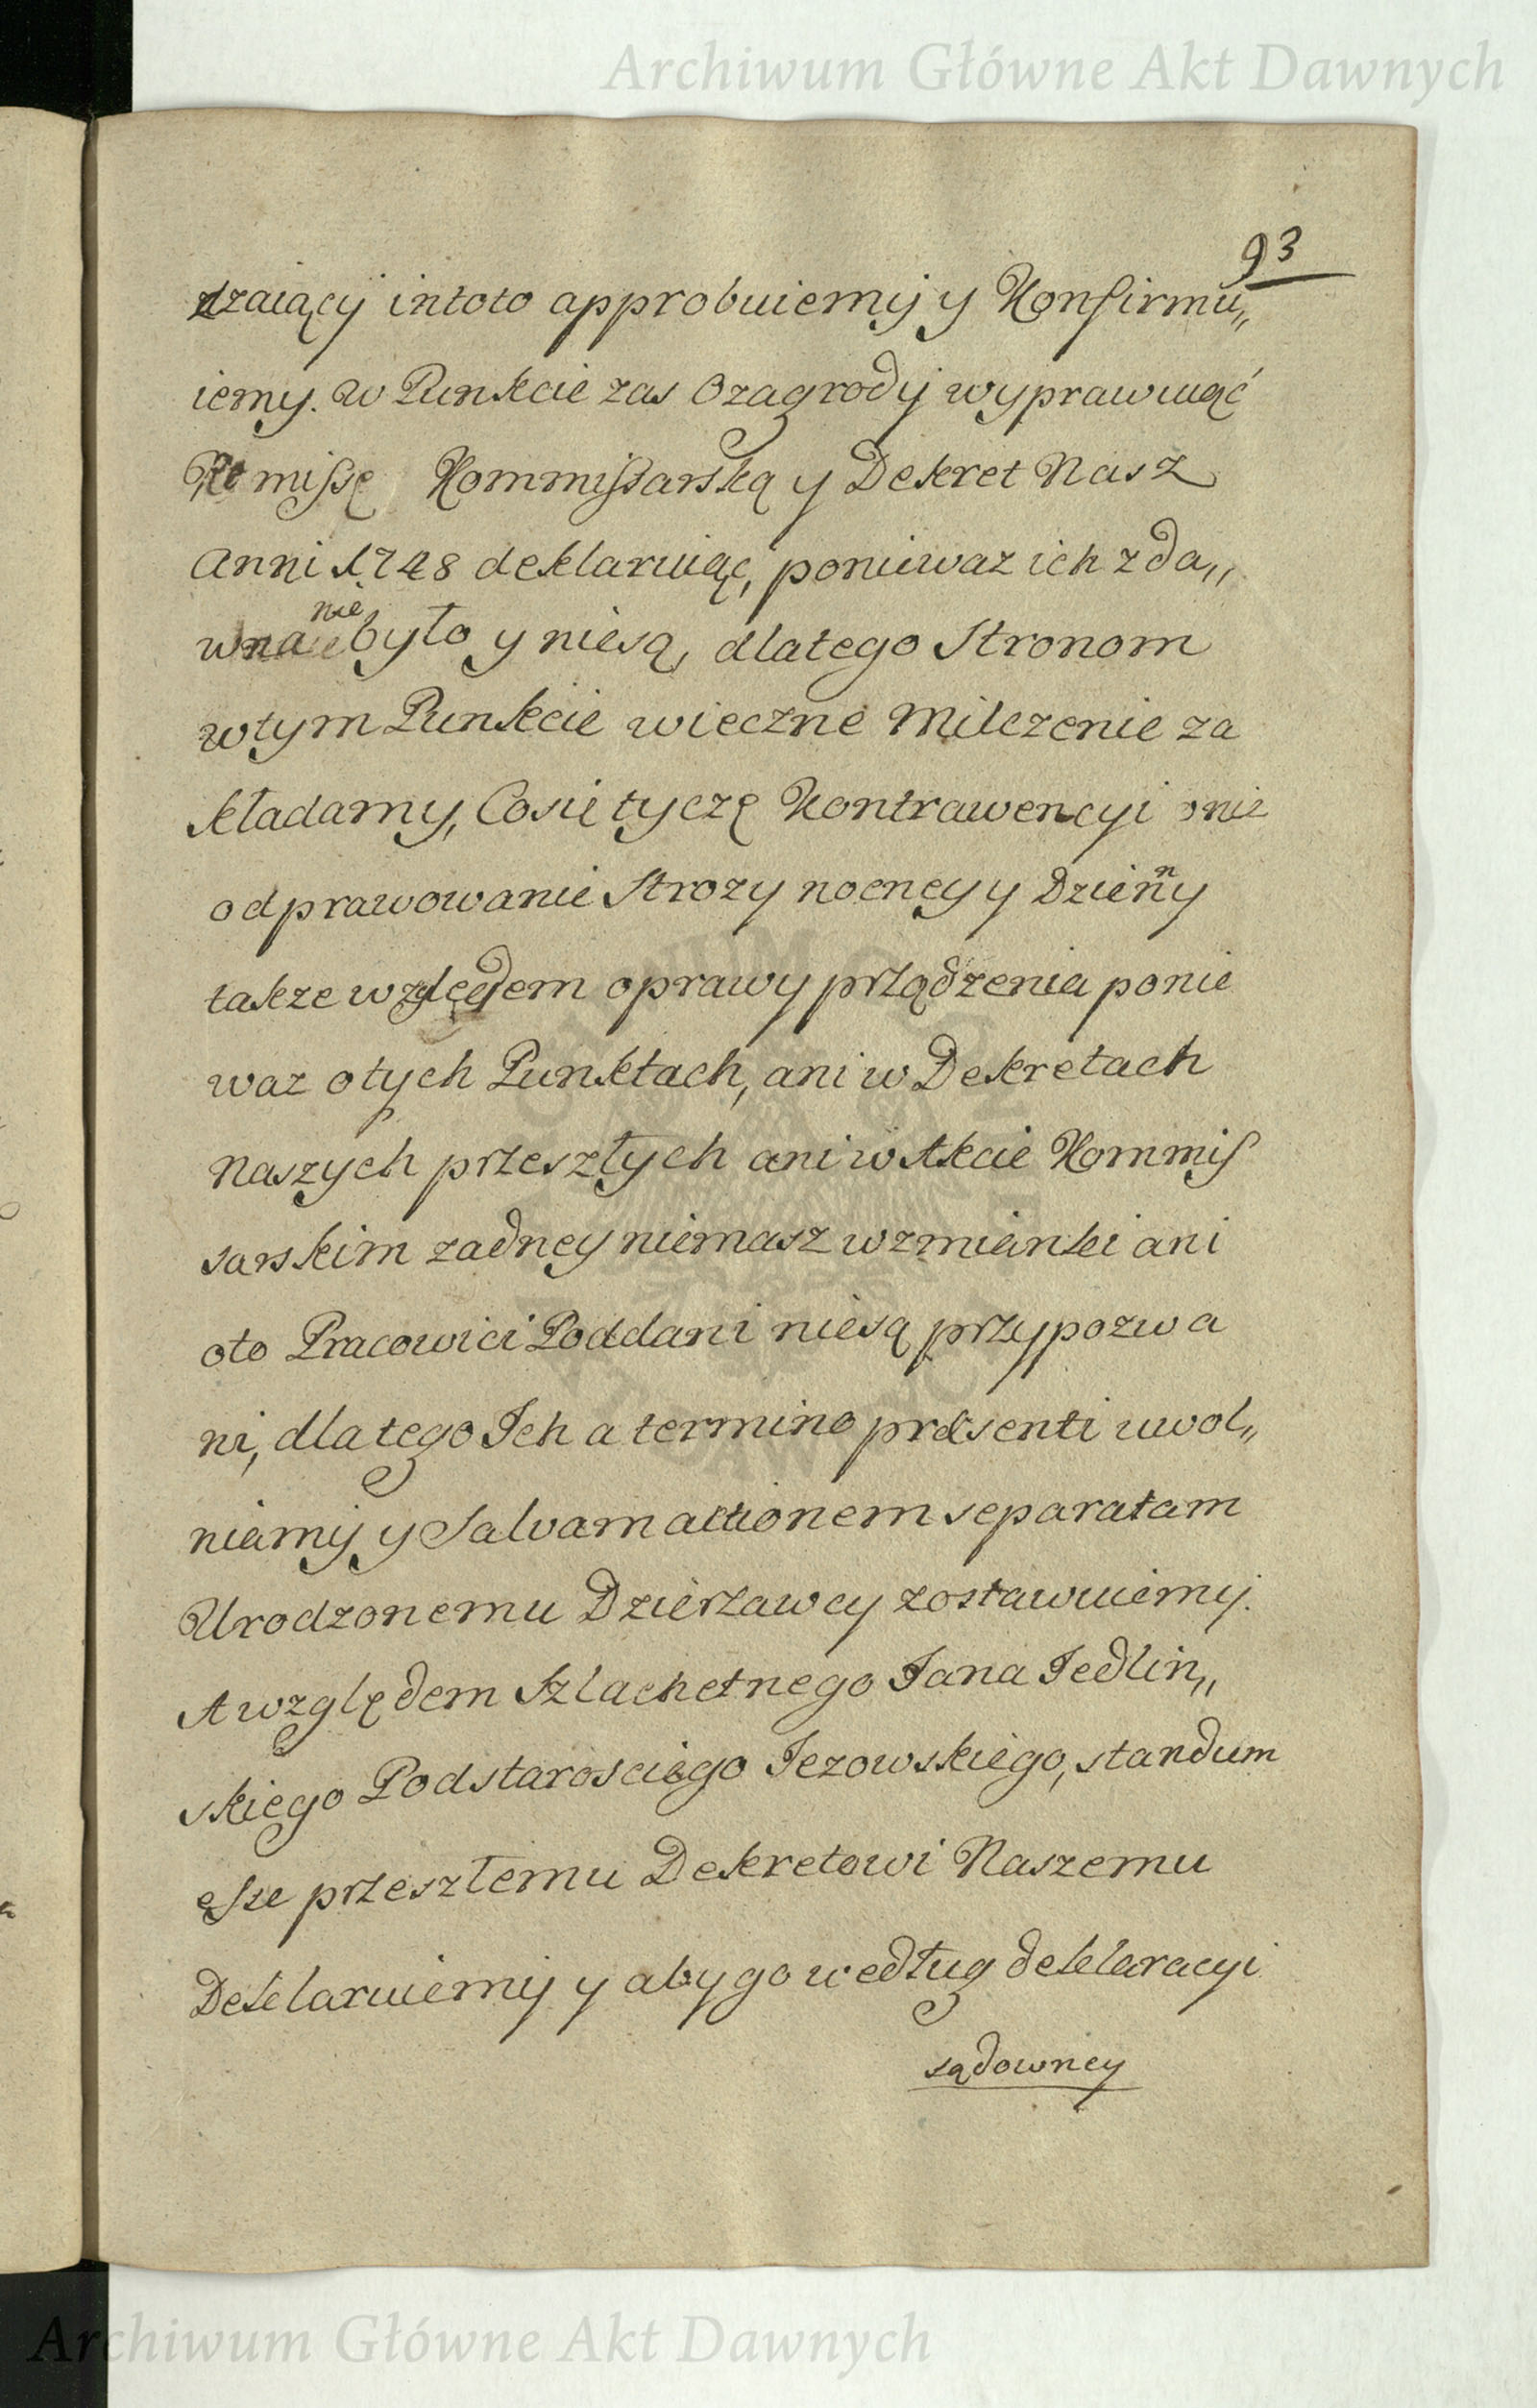 Archiwum Główne Akt Dawnych
93
dzaiący intoto approbuiemy y Konfirmu„
iemy. W Punkcie zas Ozagrody wyprawuiąć
Remissę Kommissarską y Dekret Nasz
Anni 1748 deklaruiąc, poniewaz ich z da„
wna nie było y niesą, dlatego Stronom
wtym Punkcie wieczne Milczenie za
kładamy, Cosie tyczę Kontrawencyi o nie
odprawowanie Strozy nocney y Dzienny
takze względem oprawy prządzenia ponie
waz otych Punktach, ani w Dekretach
Naszych przeszłych ani w Akcie Kommis
sarskim zadney niemasz wzmianki ani
oto Pracowici Poddani niesą przypozwa
ni, dlatego Ich a termino præsenti uwol„
niamy y Salvam actionem separatam
Urodzonemu Dzierzawcy zostawuiemy.
A względem Szlachetnego Jana Jedlin„
skiego Podstarosciego Jezowskiego, standum
esse przeszłemu Dekretowi Naszemu
Deklaruiemy y aby go według deklaracyi
sądowney
Archiwum Główne Akt Dawnych